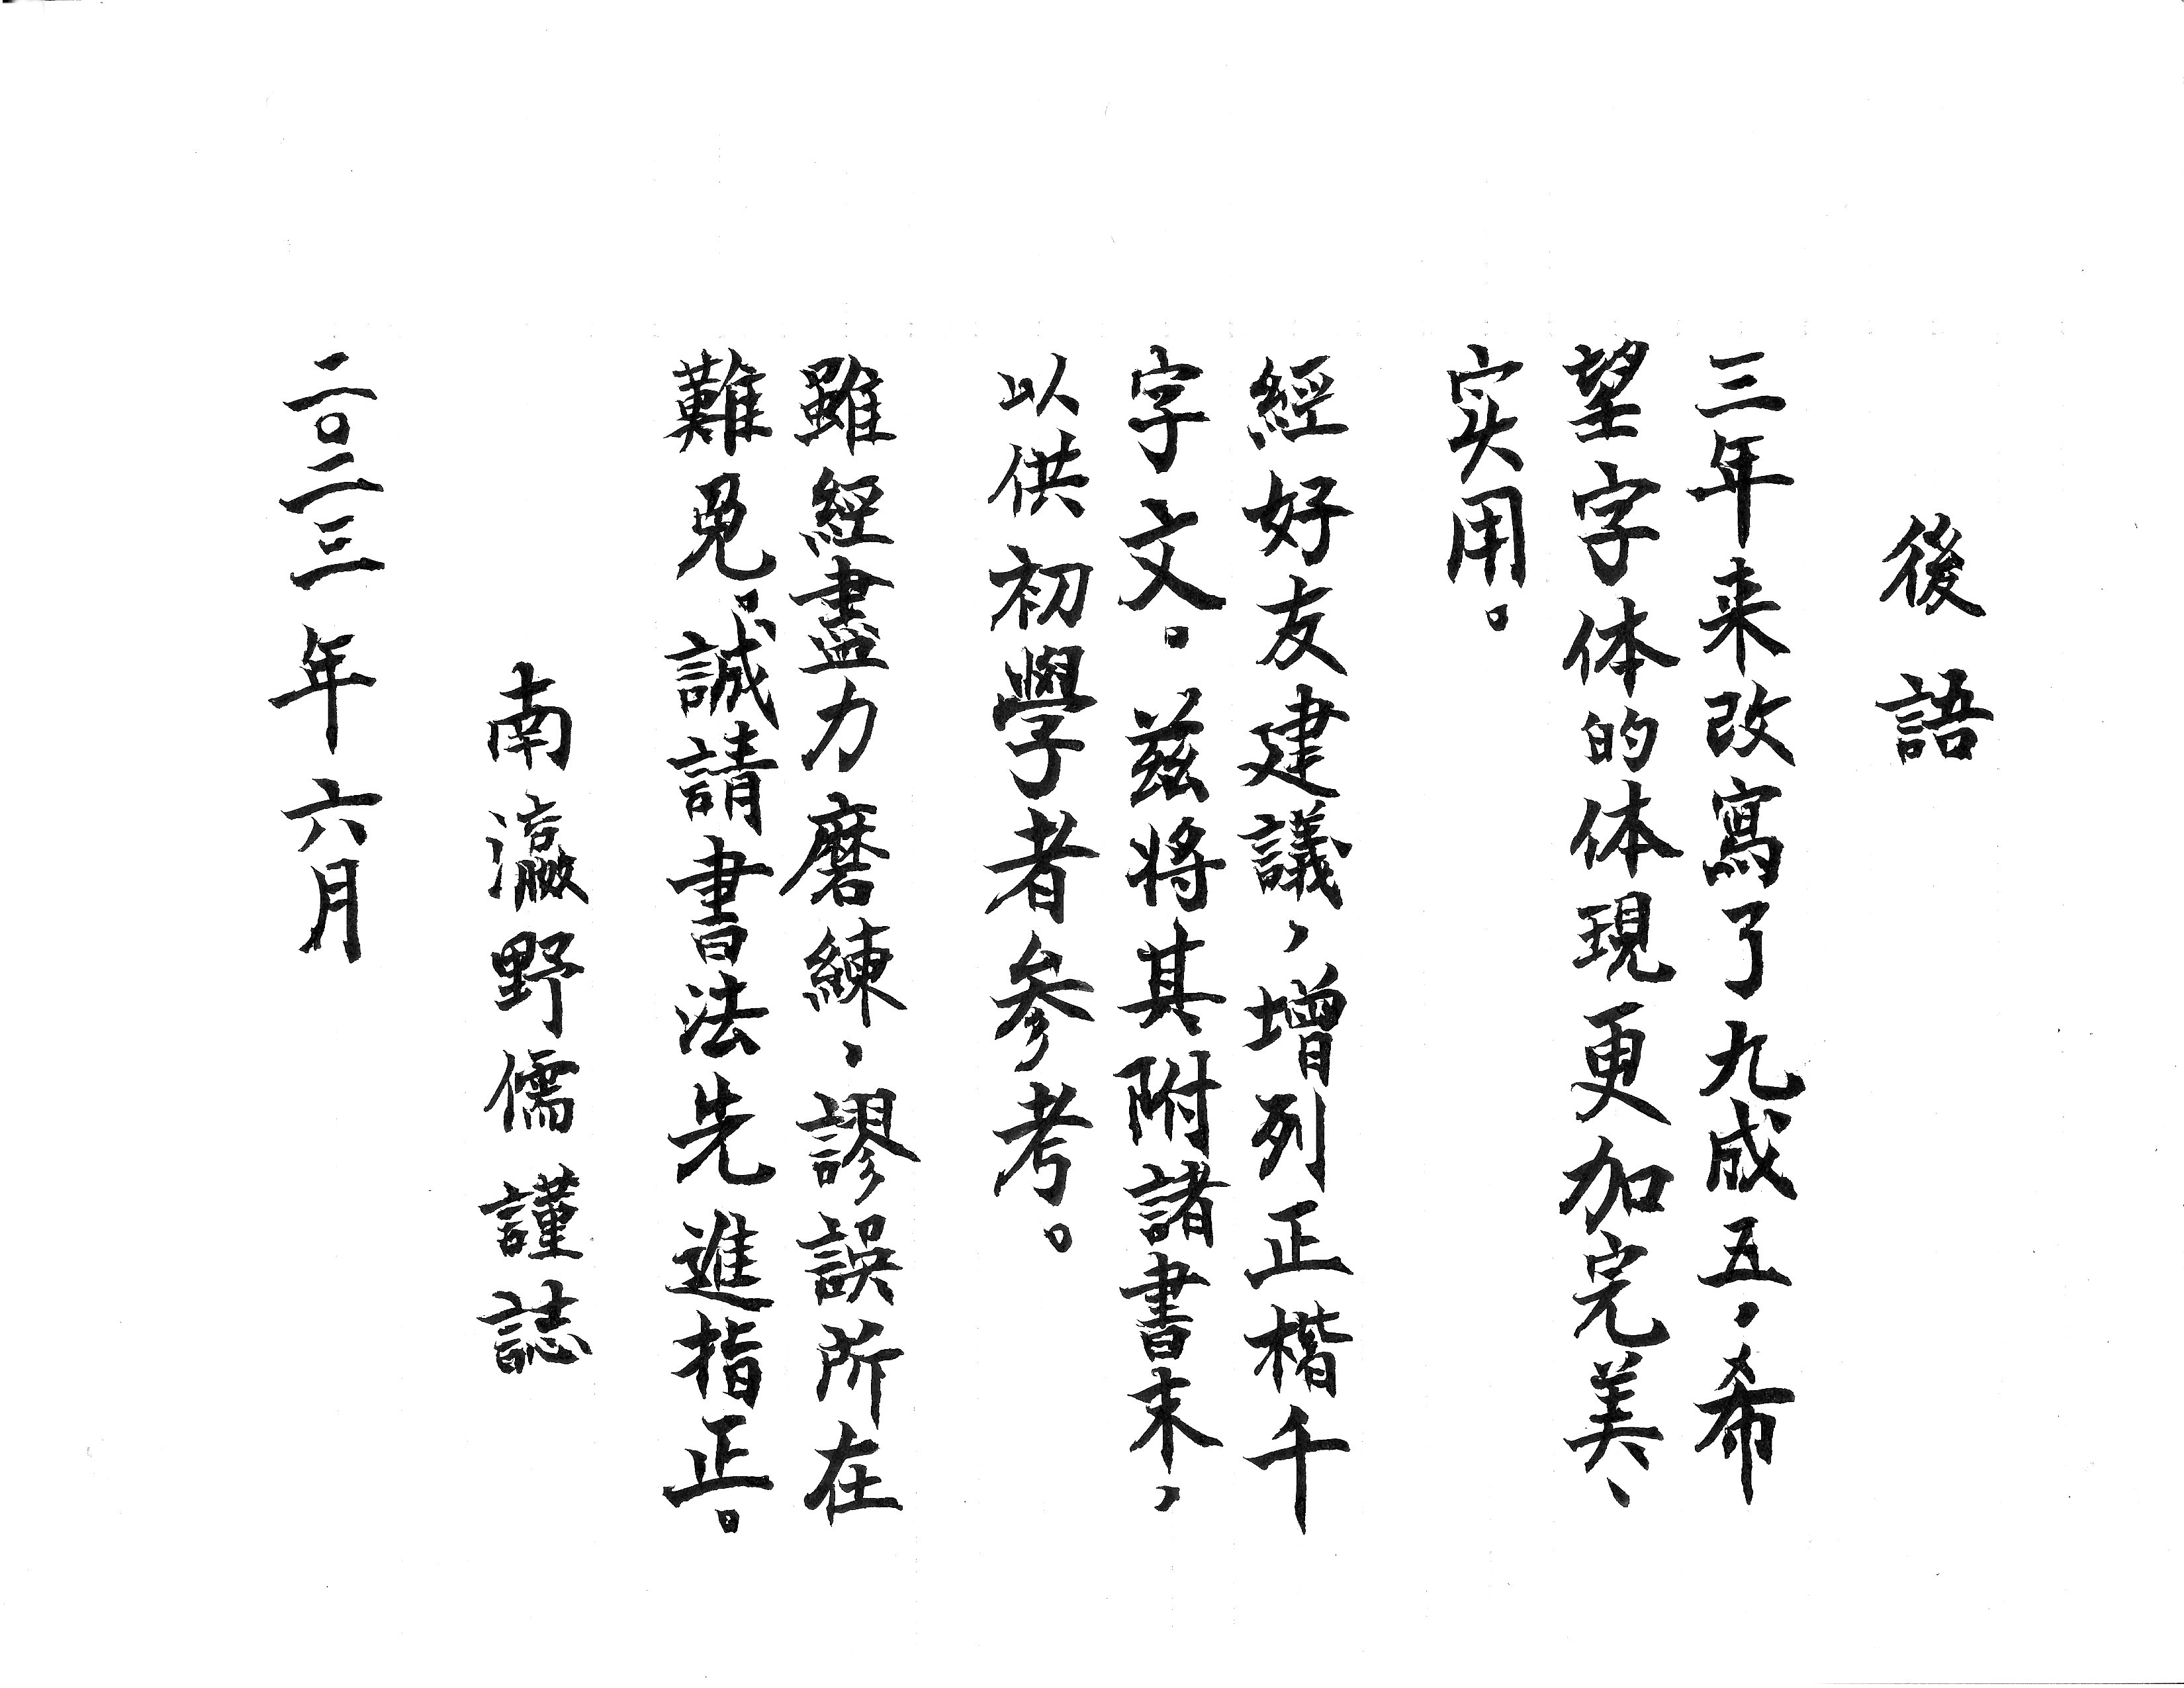 後語
三年来改寫了九成五，希
望字体的体現更加完美、
实用。
經好友建議，增列正楷千
字文。兹將其附諸書末，
以供初學者参考。
雖經盡力磨練，謬誤所在
難免。誠請書法先進指正。
南瀛野儒謹誌
二〇二三年六月